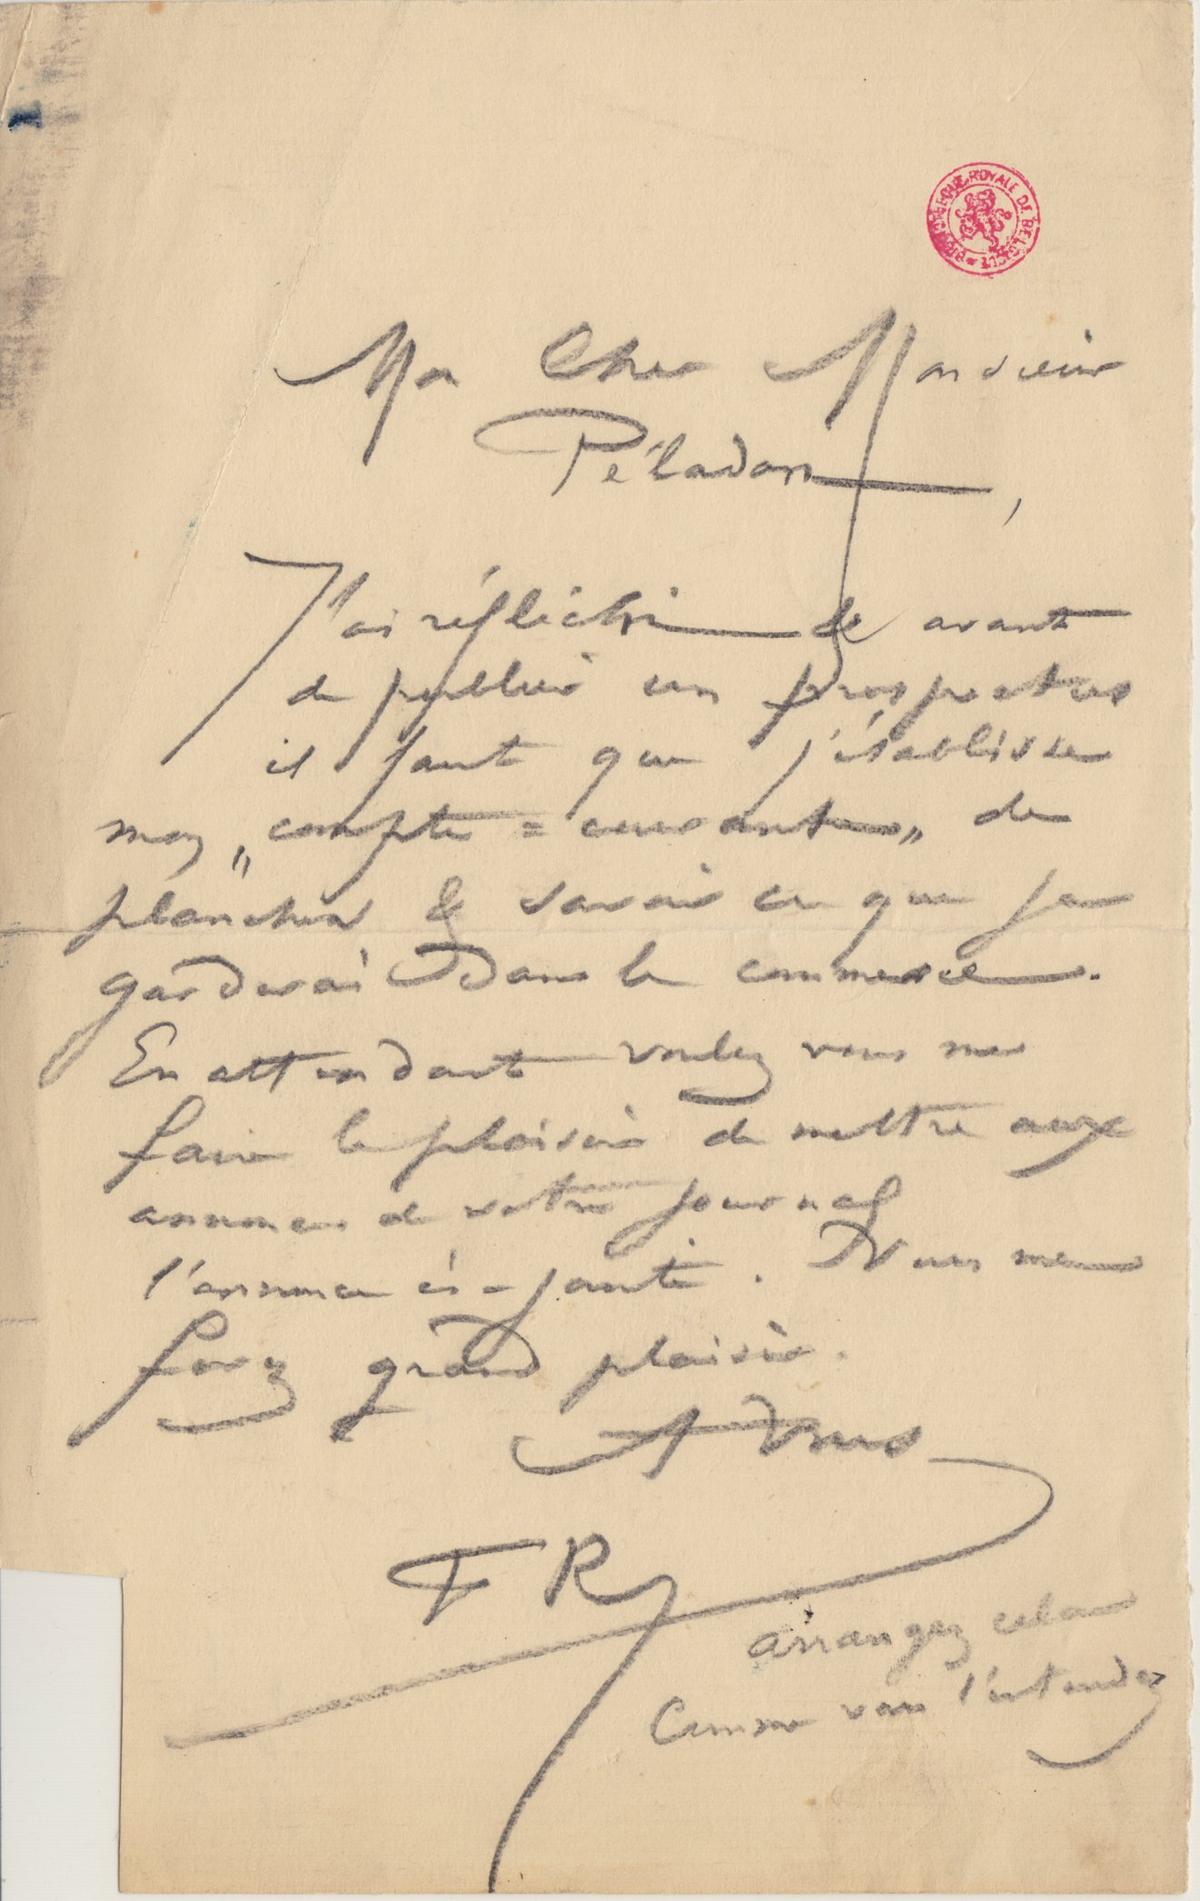 1
BIBLIOTHEQUE ROYALE DE BELGIQUE
Mon Cher Monsieur
Péladan,
J'ai réfléchi & avant
de publier un prospectus
il faut que j'établisse
mon „compte = courant„ de
planches & savoir ce que je
garderai dans le commerce.
En attendant voulez vous me
faire le plaisir de mettre aux
annonces de votre journal
l'annonce ci-jointe. Vous me
ferez grand plaisir.
A Vous
FR
arrangez cela
Comme vous l'entendez